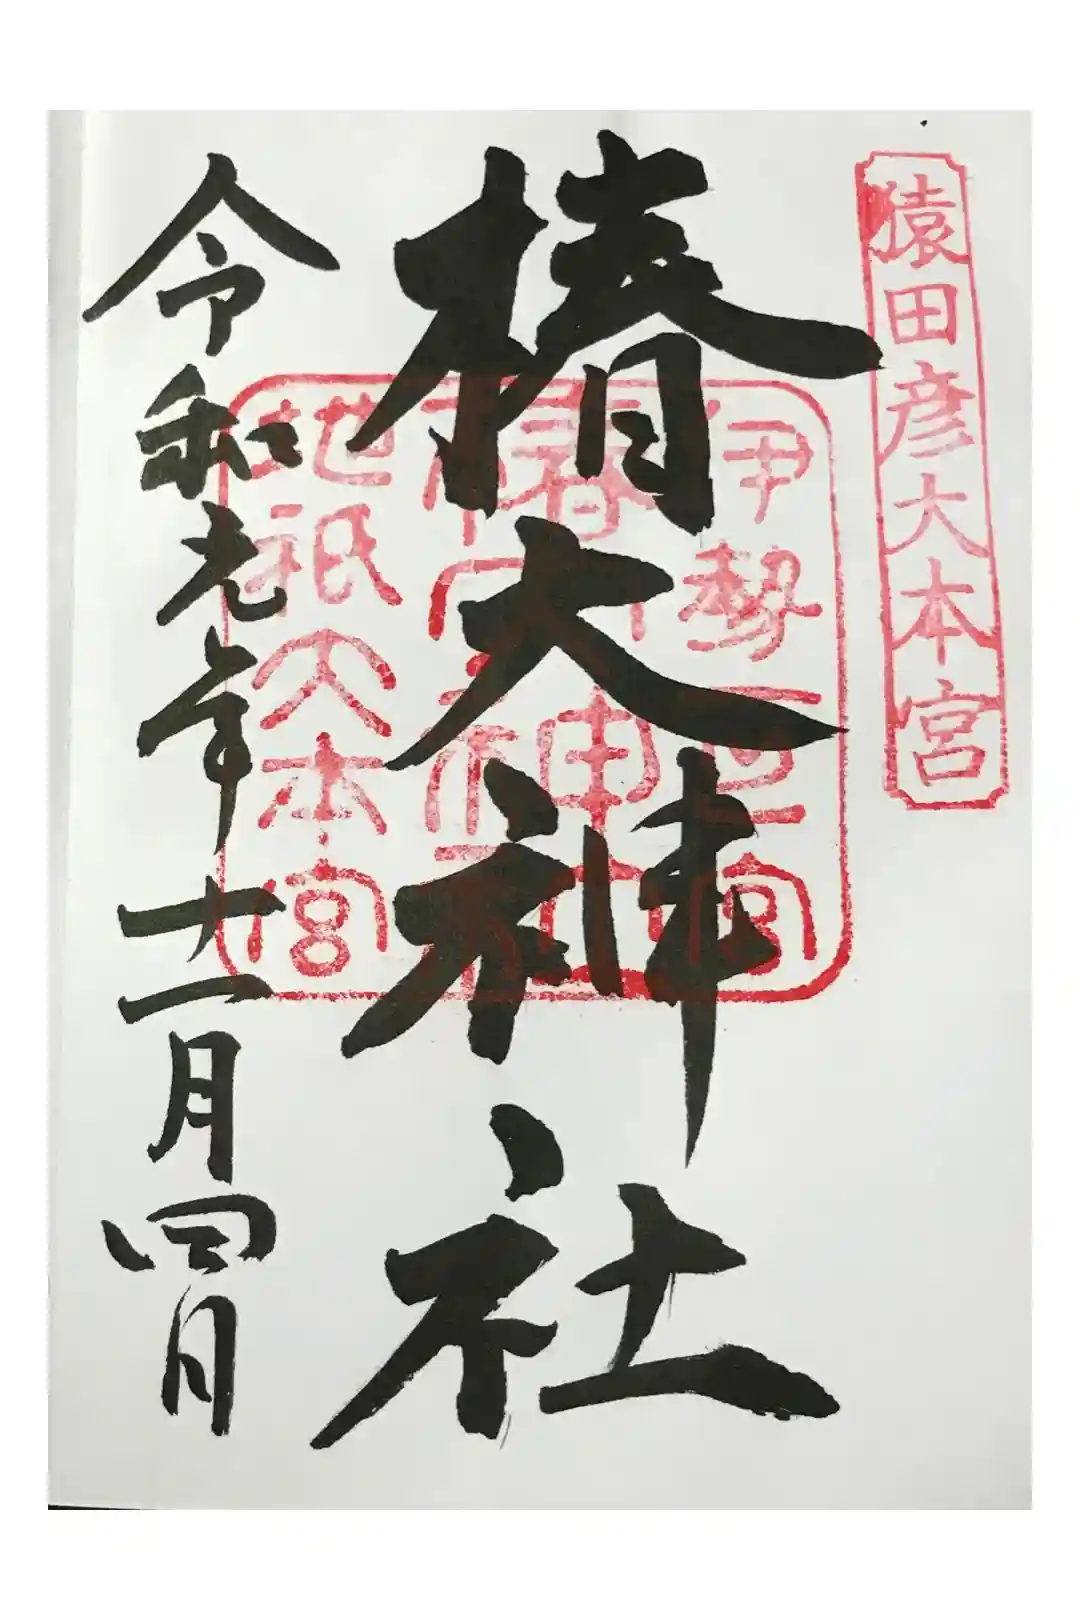 猿田彦大本宮
椿大神社
伊勢一之宮
椿大神社
地祇大本宮
令和元年十一月四日